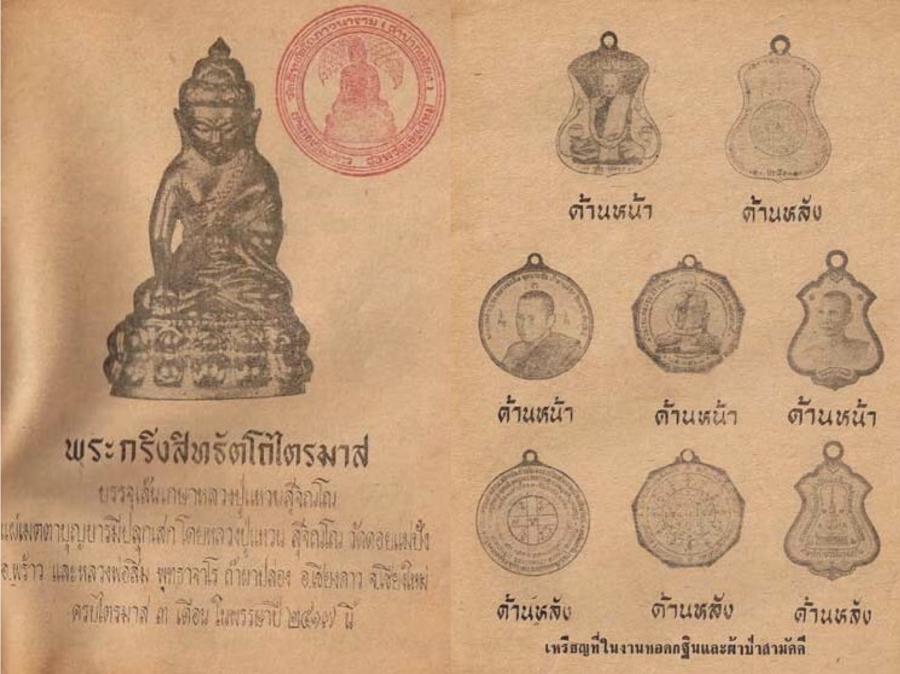 พระกริ่งสิทธัตโถไตรมาส
บรรจุเส้นเกษาหลวงปู่แหวนสุจิณโณ
แผ่เมตตาบุญบารมีปลุกเสก โดยหลวงปู่แหวน สุจิณโณ วัดดอยแม่ปั๋ง
อ.พร้าว และหลวงพ่อสิม พุทธาจาโร ถ้ำผาปล่อง อ.เชียงดาว จ.เชียงใหม่
ครบไตรมาส ๓ เดือน ในพรรษาปี ๒๕๑๗ นี้
ด้านหน้า ด้านหลัง
ด้านหน้า ด้านหน้า ด้านหน้า
ด้านหลัง ด้านหลัง ด้านหลัง
เหรียญที่ในงานทอดกฐินและผ้าป่าสามัคคี